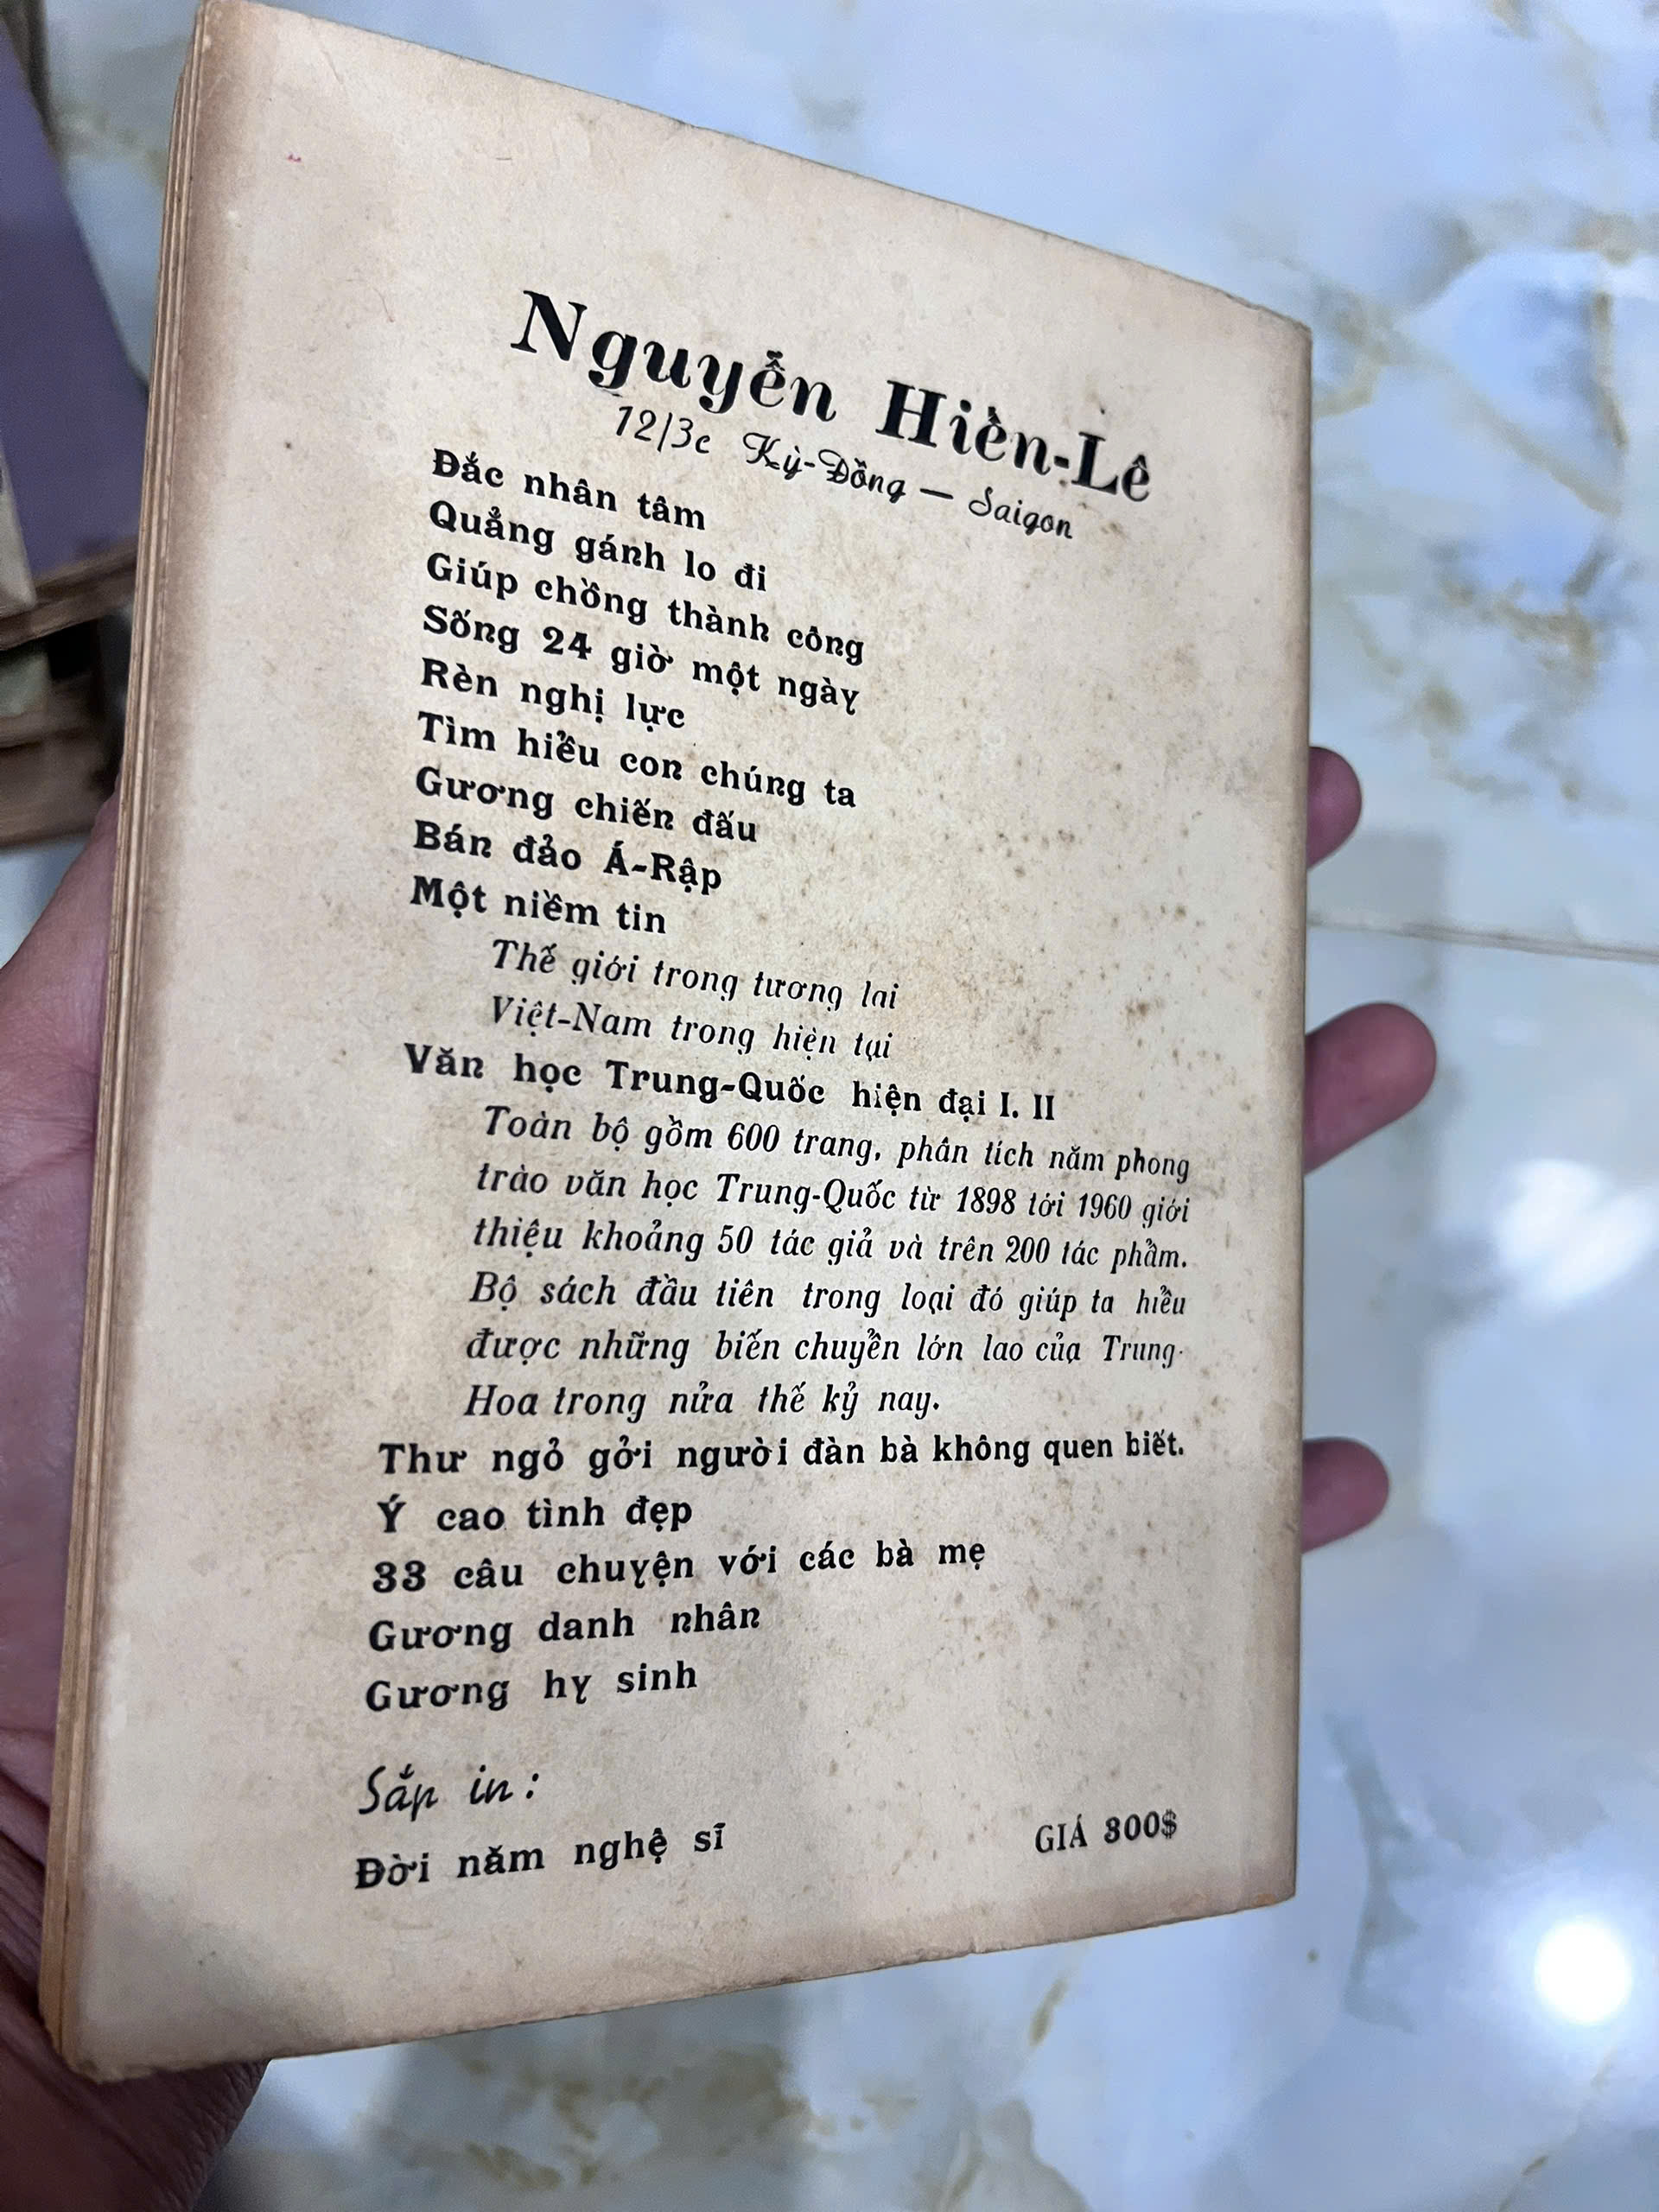 Nguyễn Hiền-Lê
12/3c Kỳ-Đồng — Saigon
Đắc nhân tâm
Quẳng gánh lo đi
Giúp chồng thành công
Sống 24 giờ một ngày
Rèn nghị lực
Tìm hiểu con chúng ta
Gương chiến đấu
Bán đảo Á-Rập
Một niềm tin
Thế giới trong tương lai
Việt-Nam trong hiện tại
Văn học Trung-Quốc hiện đại I. II
Toàn bộ gồm 600 trang, phân tích năm phong
trào văn học Trung-Quốc từ 1898 tới 1960 giới
thiệu khoảng 50 tác giả và trên 200 tác phẩm.
Bộ sách đầu tiên trong loại đó giúp ta hiểu
được những biến chuyển lớn lao của Trung-
Hoa trong nửa thế kỷ nay.
Thư ngỏ gởi người đàn bà không quen biết.
Ý cao tình đẹp
33 câu chuyện với các bà mẹ
Gương danh nhân
Gương hy sinh
Sắp in :
Đời năm nghệ sĩ
GIÁ 300$